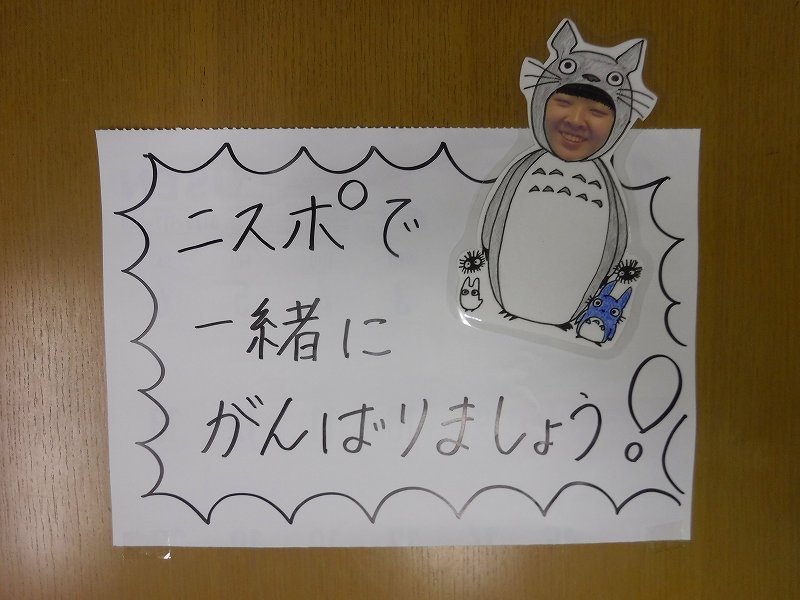 ニスポで
一緒に
がんばりましょう!